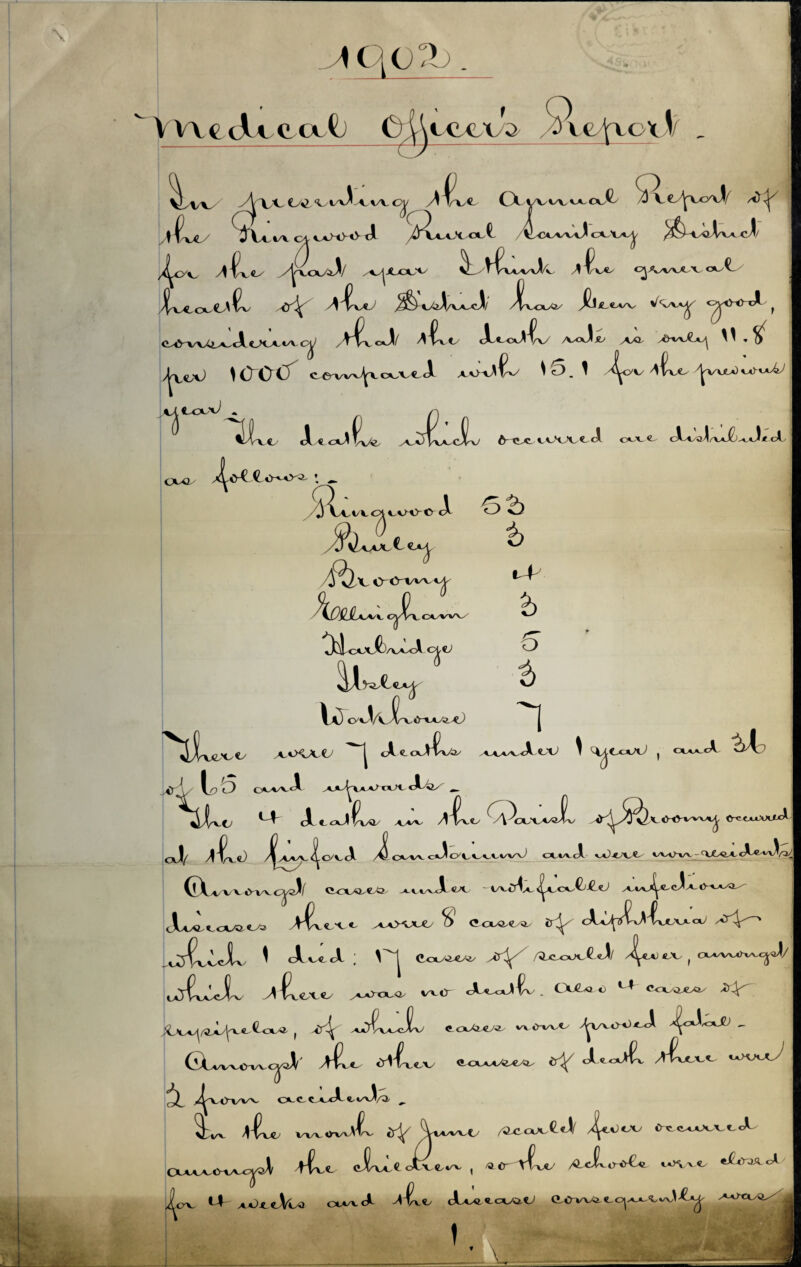 1902.
Medical Officer's Report
In presenting the Annual Report of
the Ringwood Rural Sanitary District
for the past year I think the general
health of the District has been very good,
considering that the death rate is only 11.8
per 1000 compared with 15.1 for the previous
year.
The deaths which occurred are distributed
as follows :—
Ringwood 52
Burley 3
Broomy 4
Ellingham 3
Harbridge 5
Ibsley 3
North House 7
There were 7 deaths under 1 year, and 36
of 65 and upwards —
The 4 deaths in the Parish of Broomy occurred
at the Fordingbridge Sanatorium and were non-residents
Amongst cases under notifiable infectious
diseases there were 8 cases of diphtheria of
which 1 died; 17 cases of scarlet fever, amongst
which there was no death. Also 4 cases of
Erysipelas, of which cases none proved fatal —
Amongst the other causes of death there were
2 from accidents —
In the month of June scarlet fever occurred
amongst the children, so the schools were closed
for 4 weeks and the disease consequently was
1.